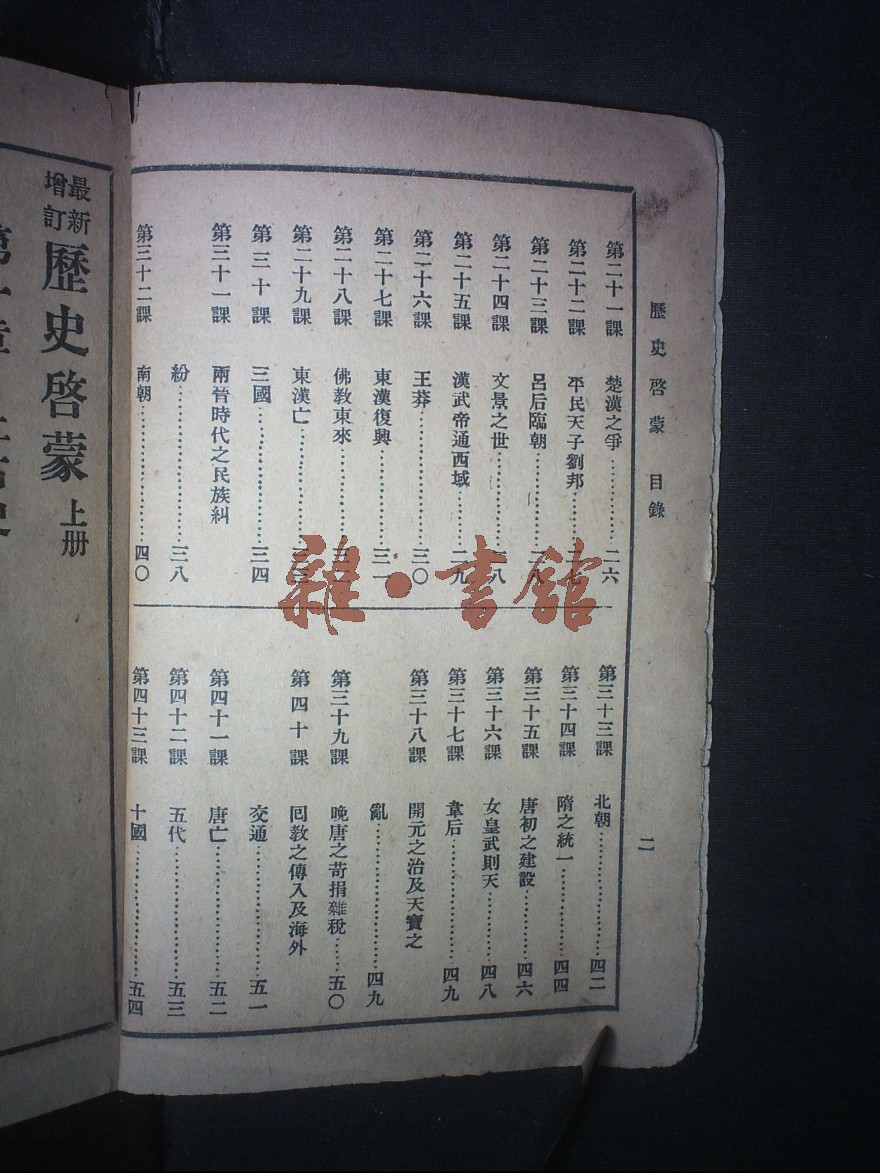 歷史啓蒙 目錄
二
第二十一課 楚漢之爭…………二六
第二十二課 平民天子劉邦…………七
第二十三課 呂后臨朝…………二八
第二十四課 文景之世…………二八
第二十五課 漢武帝通西域…………二九
第二十六課 王莽…………三〇
第二十七課 東漢復興…………三一
第二十八課 佛教東來…………三
第二十九課 東漢亡…………三
第三十課 三國…………三四
第三十一課 兩晉時代之民族糾
紛…………三八
第三十二課 南朝…………四〇
第三十三課 北朝…………四二
第三十四課 隋之統一…………四四
第三十五課 唐初之建設…………四六
第三十六課 女皇武則天…………四八
第三十七課 韋后…………四九
第三十八課 開元之治及天寶之
亂…………四九
第三十九課 晚唐之苛捐雜稅……五〇
第四十課 囘教之傳入及海外
交通…………五一
第四十一課 唐亡…………五二
第四十二課 五代…………五三
第四十三課 十國…………五四
最新增訂 歷史啓蒙 上册
雜·書館